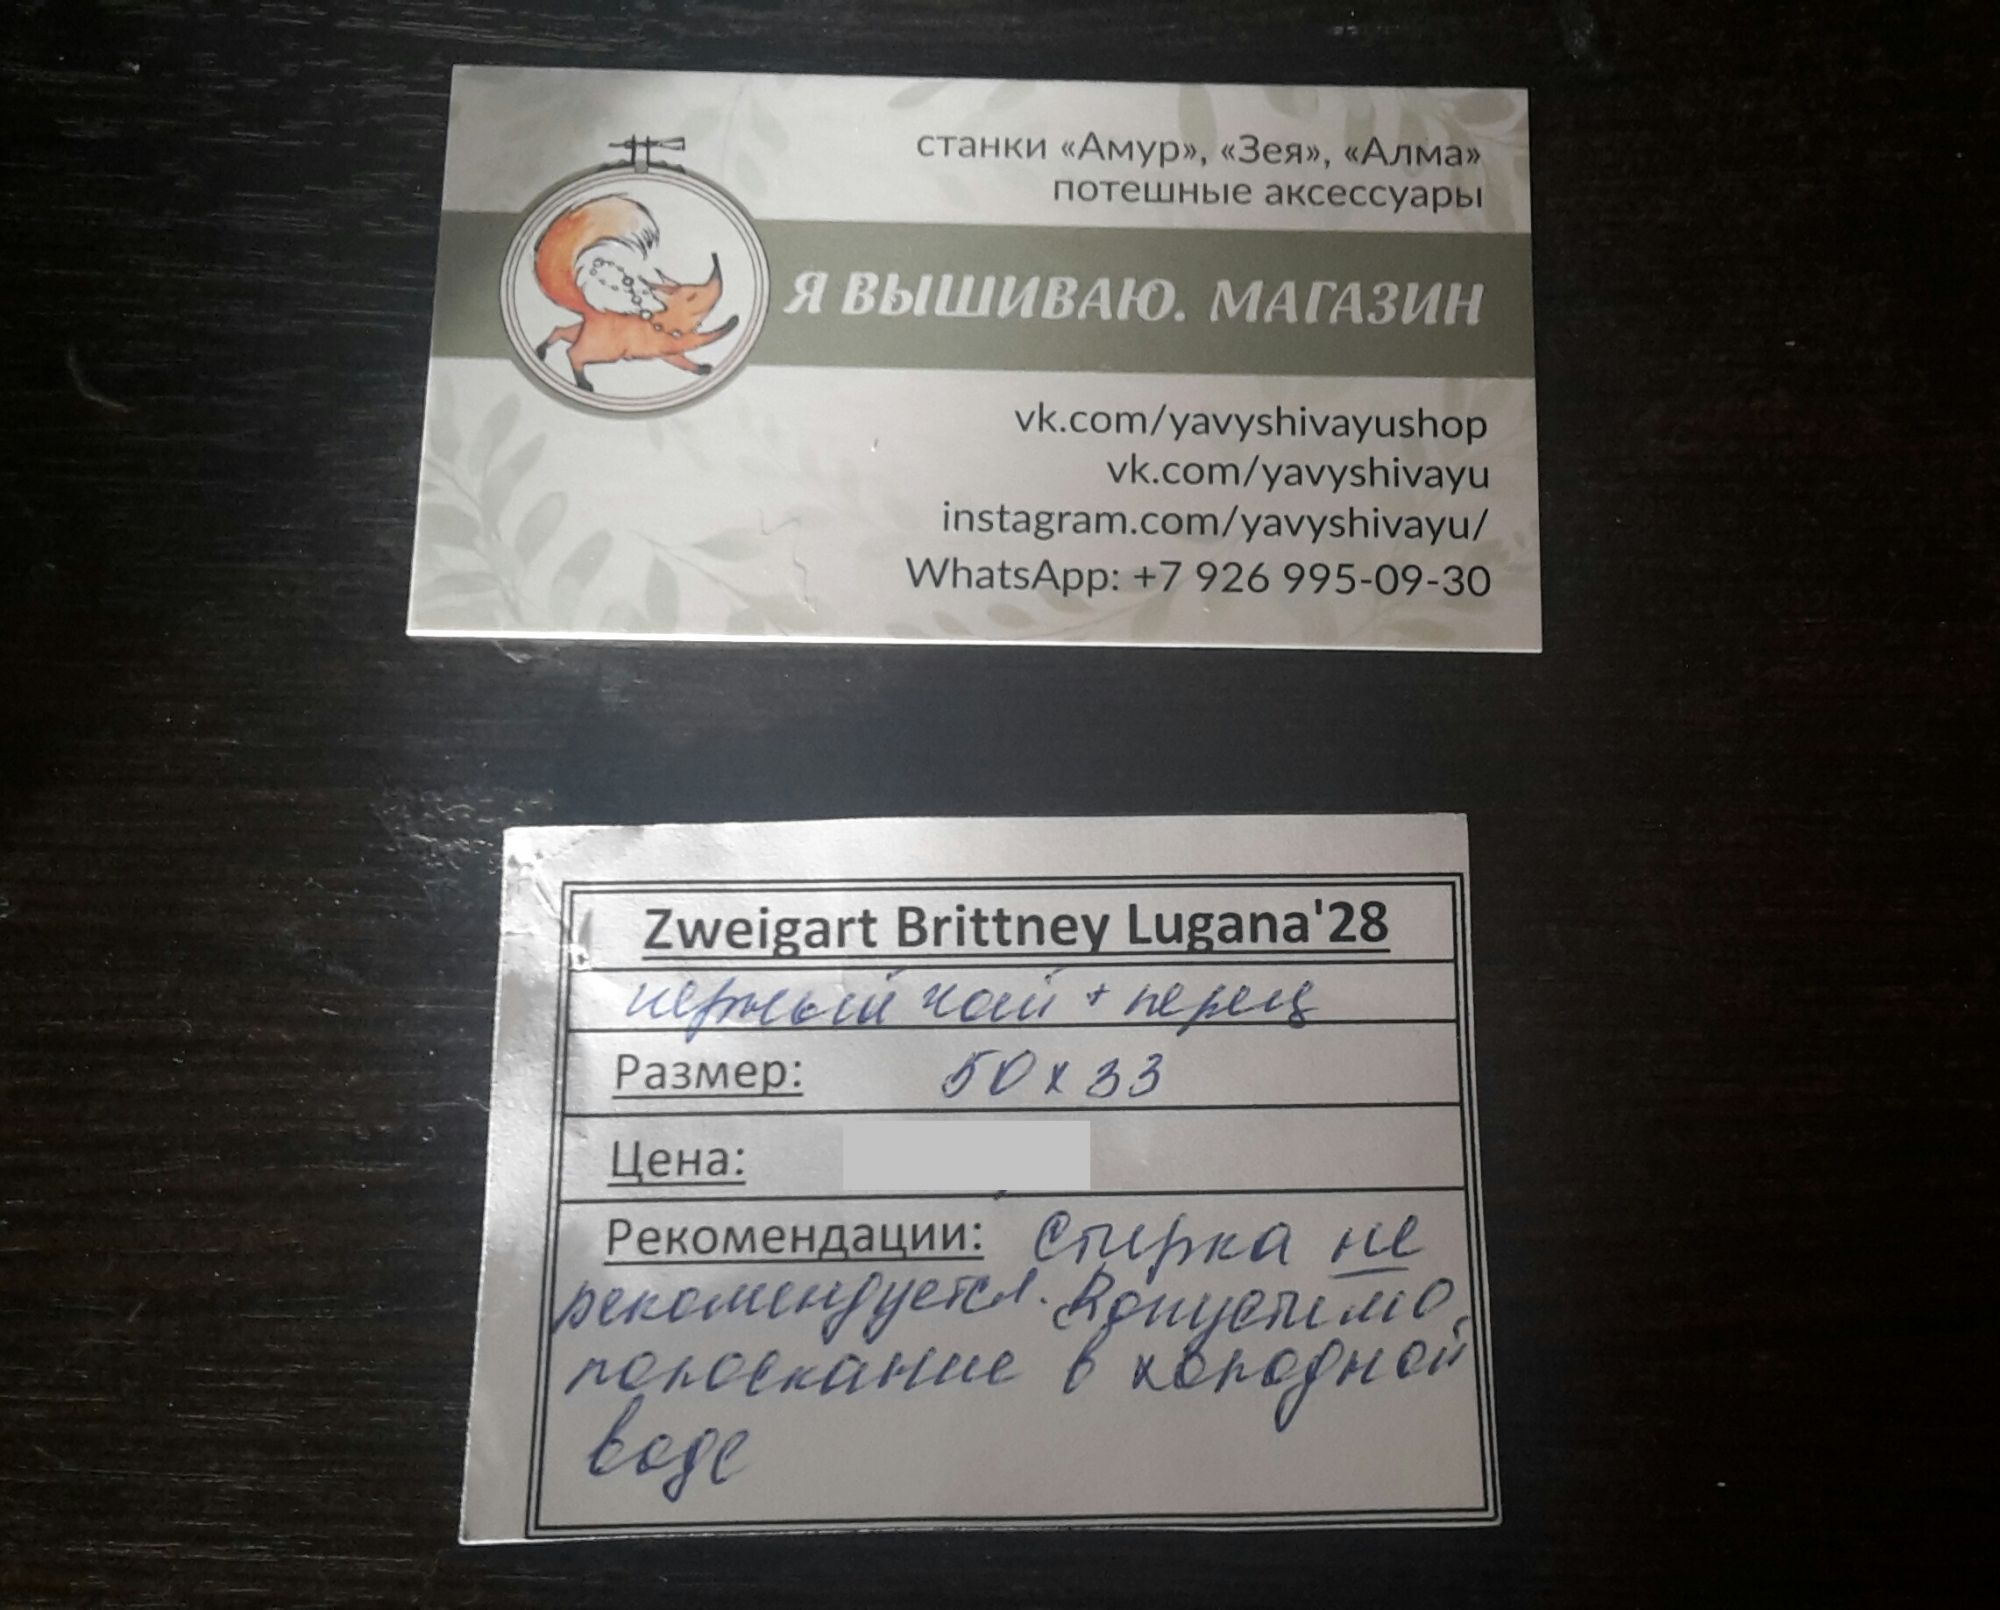 станки «Амур», «Зея», «Алма»
потешные аксессуары
Я ВЫШИВАЮ. МАГАЗИН
vk.com/yavyshivayushop
vk.com/yavyshivayu
instagram.com/yavyshivayu/
WhatsApp: +7 926 995-09-30
Zweigart Brittney Lugana'28
черный чай + перец
Размер: 50 х 33
Цена:
Рекомендации: Стирка не
рекомендуется. Допустимо
полоскание в холодной
воде